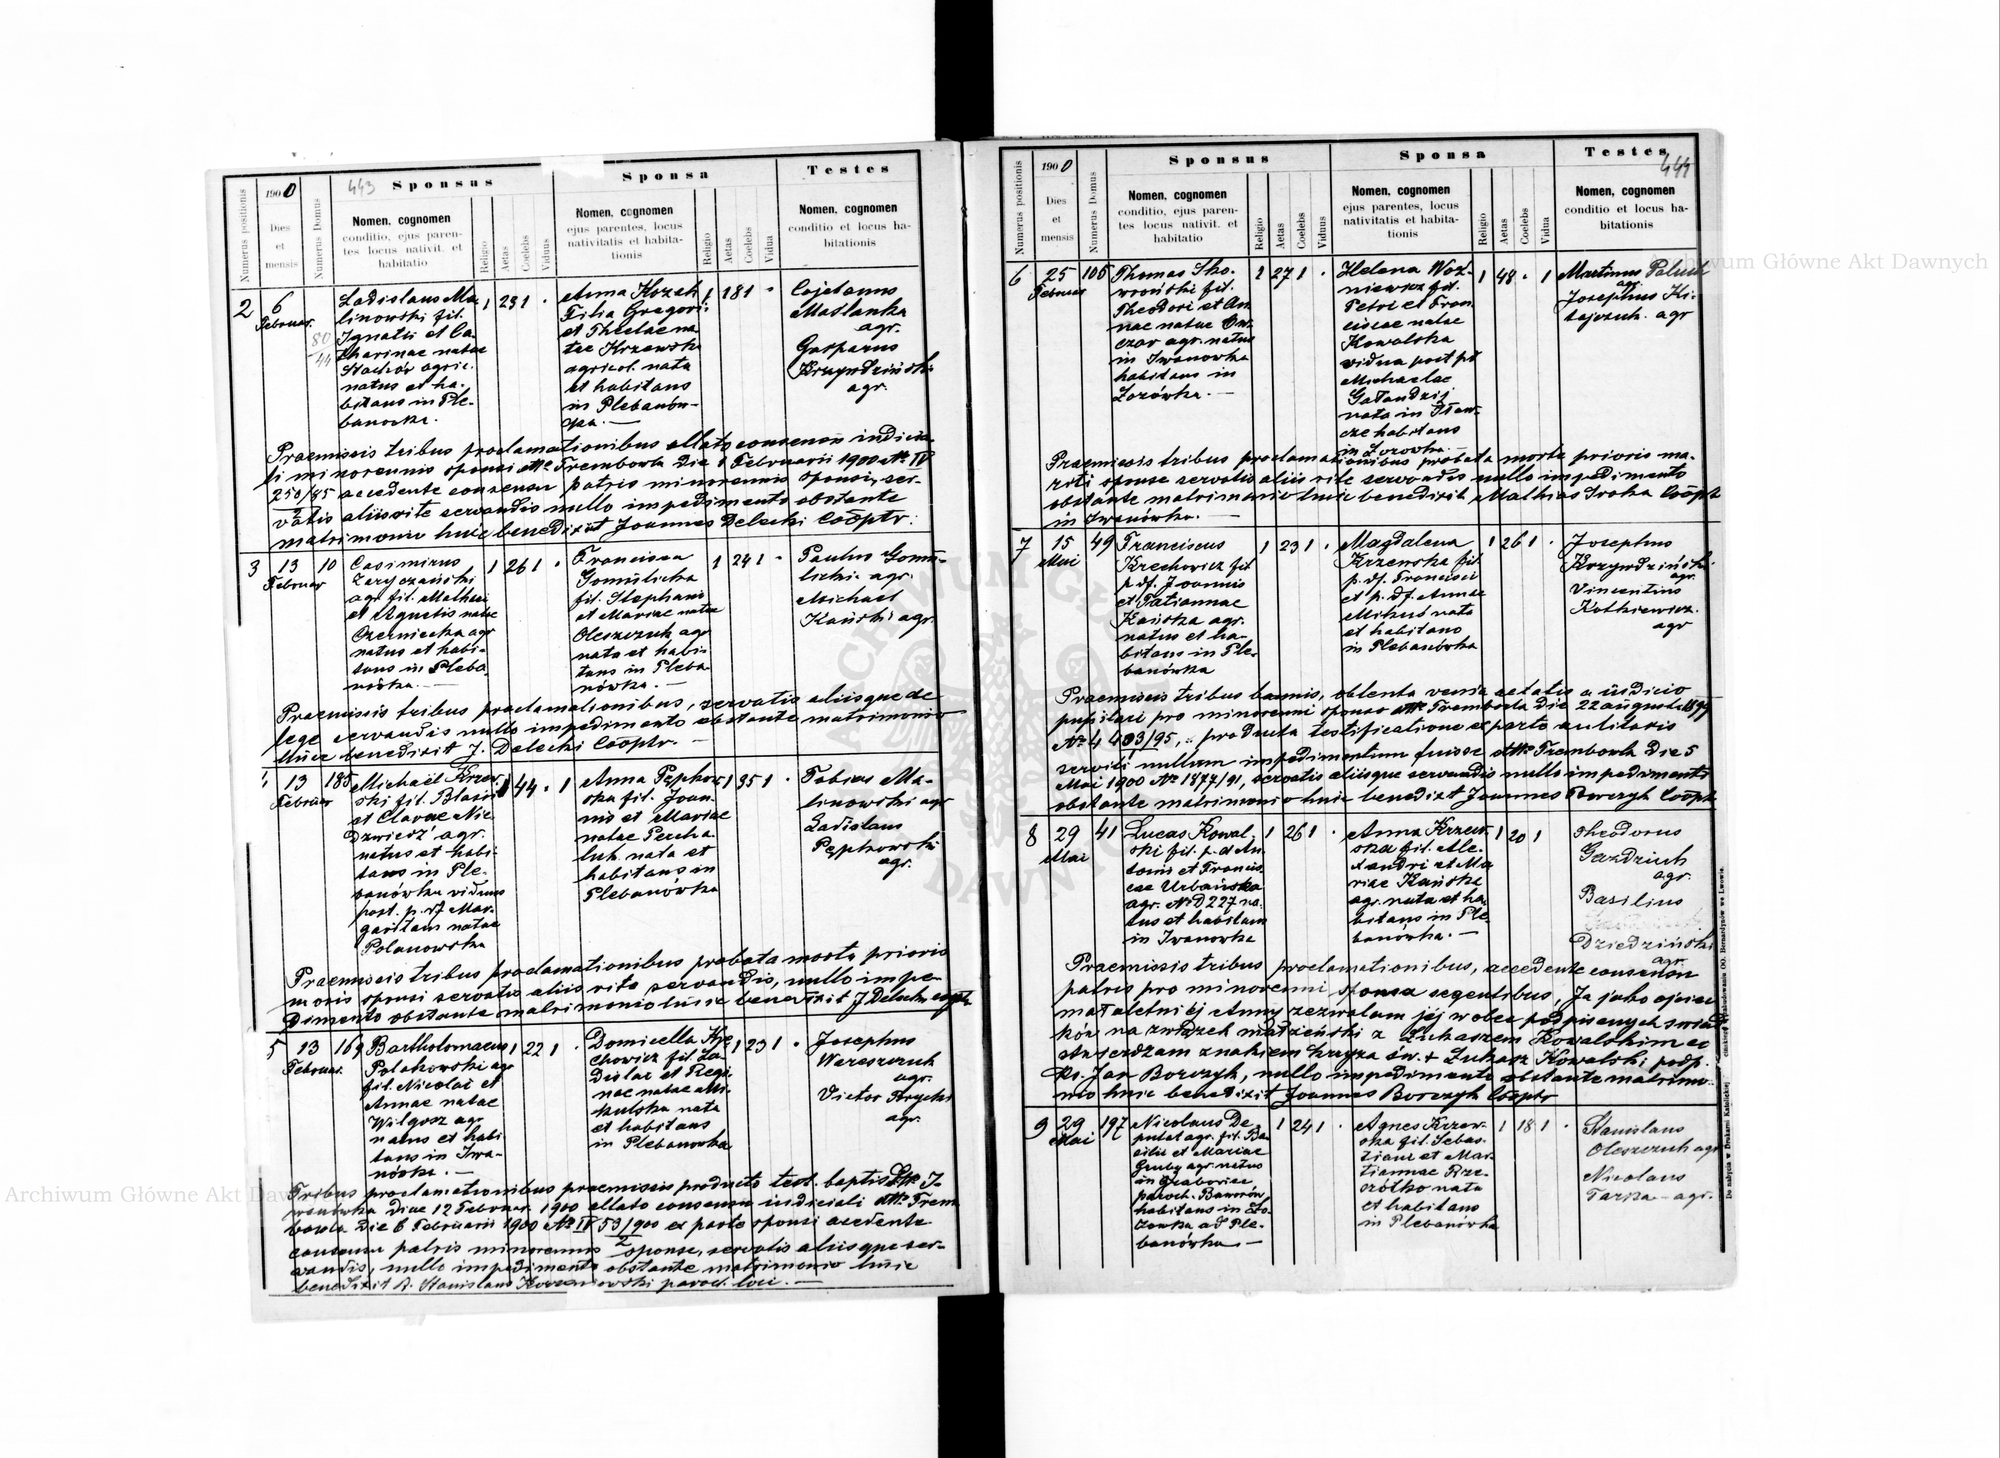 443
Numerus positionis
1900
Dies
et
mensis
Numerus Domus
Sponsus
Nomen, cognomen
conditio, ejus paren-
tes locus nativit. et
habitatio
Religio
Aetas
Coelebs
Viduus
Sponsa
Nomen, cognomen
ejus parentes, locus
nativitatis et habita-
tionis
Religio
Aetas
Coelebs
Vidua
Testes
Nomen, cognomen
conditio et locus ha-
bitationis
2
6
Februar.
80
44
Ladislaus Ma-
linowski fil.
Ignatii et Ca-
tharinae natae
Stachów agric.
natus et ha-
bitans in Ple-
banowka.
1 23 1 -
Anna Kozak
Filia Gregorii
et Theclae na-
tae Krzewska
agricol. nata
et habitans
in Plebanów-
ka. —
1 18 1 -
Cajetanus
Maslanka
agr.
Gasparus
Krzyndziński
agr.
Praemissis tribus proclamationibus allato consensu indicia-
li minorennis sponsi Trembowla die 1 Februarii 1900 No IV
250/85 accedente consensu patris minorennis sponsi, ser-
2
vatis aliis rite servandis nullo impedimento obstante
matrimonio huic benedixit Joannes Delecki Cooptr.
3
13
Februar
10
Casimirus
Zaryczański
agr. fil. Mathaei
et Agnetis natae
Czerniecka agr
natus et habi-
tans in Pleba
nówka. —
1 26 1 -
Francisca
Gomulicka
fil. Stephani
et Mariae natae
Oleszczuk agr
nata et habi-
tans in Pleba
nówka. —
1 24 1 -
Paulus Gomu-
licki agr.
Michael
Kański agr.
Praemissis tribus proclamationibus, servatis aliisque de
lege servandis nullo impedimento obstante matrimonio
huic benedixit J. Delecki Cooptr. —
13
Februar
185
Michael Krzew
ski fil. Blasii
et Clarae Nie
dzwiedź agr.
natus et habi-
tans in Ple-
banówka viduus
post. p. df Mar-
garitam natae
Polanowska
1 44 - 1
Anna Pępkow
ska fil. Joan-
nis et Mariae
natae Pecha
luk nata et
habitans in
Plebanówka
1 35 1 -
Tobias Ma-
linowski agr
Ladislaus
Pępkowski
agr.
Praemissis tribus proclamationibus probata morte prioris
uxoris sponsi servatis aliis rite servandis, nullo impe-
dimento obstante matrimonio huic benedixit J. Delecki cooptr
5
13
Februar.
169
Bartholomaeus
Polakowski agr
fil. Nicolai et
Annae natae
Wilgosz agr
natus et habi
tans in Iwa-
nówka. —
1 22 1 -
Domicella Krze
chowicz fil. La
dislai et Regi
nae natae Mi-
kulska nata
et habitans
in Plebanowka
1 23 1 -
Josephus
Wereszczuk
agr.
Victor Prycki
agr.
Tribus proclamationibus praemissis producto test. baptis. I-
wanówka diae 12 Februar. 1900 allato consensu indiciali Trem
bowla die 6 Februarii 1900 No IV 53/900 ex parte sponsi acedente
2
consensu patris minorennis sponse, servatis aliisque ser-
vandis, nullo impedimento obstante matrimonio huic
benedixit Stanislaus paroch. loci. —
444
Numerus positionis
1900
Dies
et
mensis
Numerus Domus
Sponsus
Nomen, cognomen
conditio, ejus paren-
tes locus nativit. et
habitatio
Religio
Aetas
Coelebs
Viduus
Sponsa
Nomen, cognomen
ejus parentes, locus
nativitatis et habita-
tionis
Religio
Aetas
Coelebs
Vidua
Testes
Nomen, cognomen
conditio et locus ha-
bitationis
6
25
Februar
106
Thomas Sko-
wroński fil.
Theodori et An
nae natae Ow-
czar agr. natus
in Iwanowka
habitans in
Zorówka. —
1 27 1 -
Helena Woź-
niewicz fil.
Petri et Fran
ciscae natae
Kowalska
vidua post pd
Michaelae
Galandzij
nata in
habitans
in Zorowka.
1 48 - 1
Martinus Paluch
agr.
Josephus Ki-
tajczuk. agr
Praemissis tribus proclamationibus probata morte prioris ma-
riti sponse servatis aliis rite servandis nullo impedimento
obstante matrimonio huic benedixit Mathias Sroka Coopt
in Iwanówka. —
7
15
Mai
49
Franciscus
Krechowicz fil
p. df. Joannis
et Tatiannae
Kańska agr.
natus et ha-
bitans in Ple-
banówka
1 23 1 -
Magdalena
Krzewska fil.
p. df. Francisci
et p. df. Annae
Mikus nata
et habitans
in Plebanówka
1 26 1 -
Josephus
Krzyndziński
agr.
Vincentius
Kotkiewicz
agr
Praemissis tribus bannis, obtenta venia aetatis a iudicio
pupilari pro minorenni sponso Trembowla die 22 augusti 1899
No 4 433/95, producta testificatione ex parte militaris
servitii nullum impedimentum fuisse Trembowla die 5
Mai 1900 No 1877/91, servatis aliisque servandis nullo impedimento
obstante matrimonio huic benedixt Joannes Borczyk Coopt
8
29
Mai
41
Lucas Kowal-
ski fil. p. d An-
tonii et Francis-
cae Urbańska
agr. No D 227 na-
tus et habitans
in Iwanowka
1 26 1 -
Anna Krzew-
ska fil. Ale-
xandri et Ma
riae Kańska
agr. nata et ha-
bitans in Ple
banówka. —
1 20 1
Theodorus
Gazdziuk
agr.
Basilius
Dziedziński
agr.
Praemissis tribus proclamationibus, accedente consensu
patris pro minorenni sponsa seqentibus, Ja jako ojciec
małoletniéj Anny zezwalam jéj wobec podpisanych świad
ków na związek małżeński z Łukaszem Kowalskim co
stwierdzam znakiem krzyża św. + Łukasz Kowalski, podp.
Ks. Jan Borczyk, nullo impedimento obstante matrimo-
nio huic benedixit Joannes Borczyk Cooptr
9
29
Mai
197
Nicolaus De-
putat agr. fil. Ba-
silii et Mariae
Gruby agr. natus
in Grabowiec
paroch. Baworów
habitans in Zo-
rowka ad Ple-
banówka —
1 24 1 -
Agnes Krzew-
ska fil. Sebas-
tiani et Mar-
tiannae Brze-
czółko nata
et habitans
in Plebanówka
1 18 1 -
Stanislaus
Oleszczuk agr.
Nicolaus
Tarka - agr.
Do nabycia w Drukarni Katolickiej
OO. Bernardynów we Lwowie.
Archiwum Główne Akt Dawnych
Archiwum Główne Akt Dawnych
ARCHIWUM GŁÓWNE AKT DAWNYCH